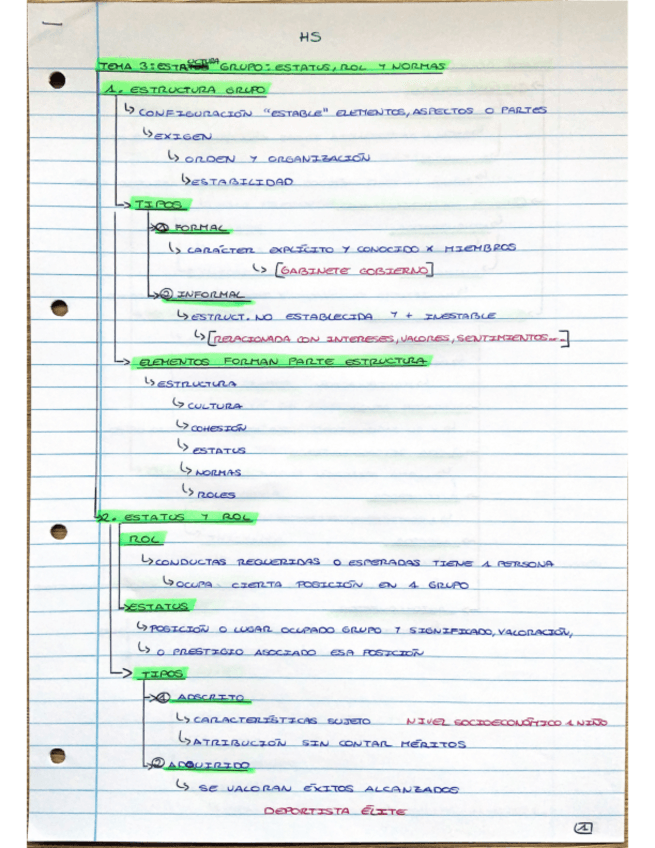 HS
TEMA 3: ESTRUCTURA GRUPO: ESTATUS, ROL Y NORMAS
1. ESTRUCTURA GRUPO
↳ CONFIGURACIÓN "ESTABLE" ELEMENTOS, ASPECTOS O PARTES
↳ EXIGEN
↳ ORDEN Y ORGANIZACIÓN
↳ ESTABILIDAD
→ TIPOS
① FORMAL
↳ CARÁCTER EXPLÍCITO Y CONOCIDO X MIEMBROS
↳ [GABINETE GOBIERNO]
② INFORMAL
↳ ESTRUCT. NO ESTABLECIDA Y + INESTABLE
↳ [RELACIONADA CON INTERESES, VALORES, SENTIMIENTOS...]
→ ELEMENTOS FORMAN PARTE ESTRUCTURA
↳ ESTRUCTURA
↳ CULTURA
↳ COHESIÓN
↳ ESTATUS
↳ NORMAS
↳ ROLES
2. ESTATUS Y ROL
ROL
↳ CONDUCTAS REQUERIDAS O ESPERADAS TIENE 1 PERSONA
↳ OCUPA CIERTA POSICIÓN EN 1 GRUPO
→ ESTATUS
↳ POSICIÓN O LUGAR OCUPADO GRUPO Y SIGNIFICADO, VALORACIÓN,
↳ O PRESTIGIO ASOCIADO ESA POSICIÓN
→ TIPOS
① ADSCRITO
↳ CARACTERÍSTICAS SUJETO NIVEL SOCIOECONÓMICO 1 NIÑO
↳ ATRIBUCIÓN SIN CONTAR MÉRITOS
② ADQUIRIDO
↳ SE VALORAN ÉXITOS ALCANZADOS
DEPORTISTA ÉLITE
1